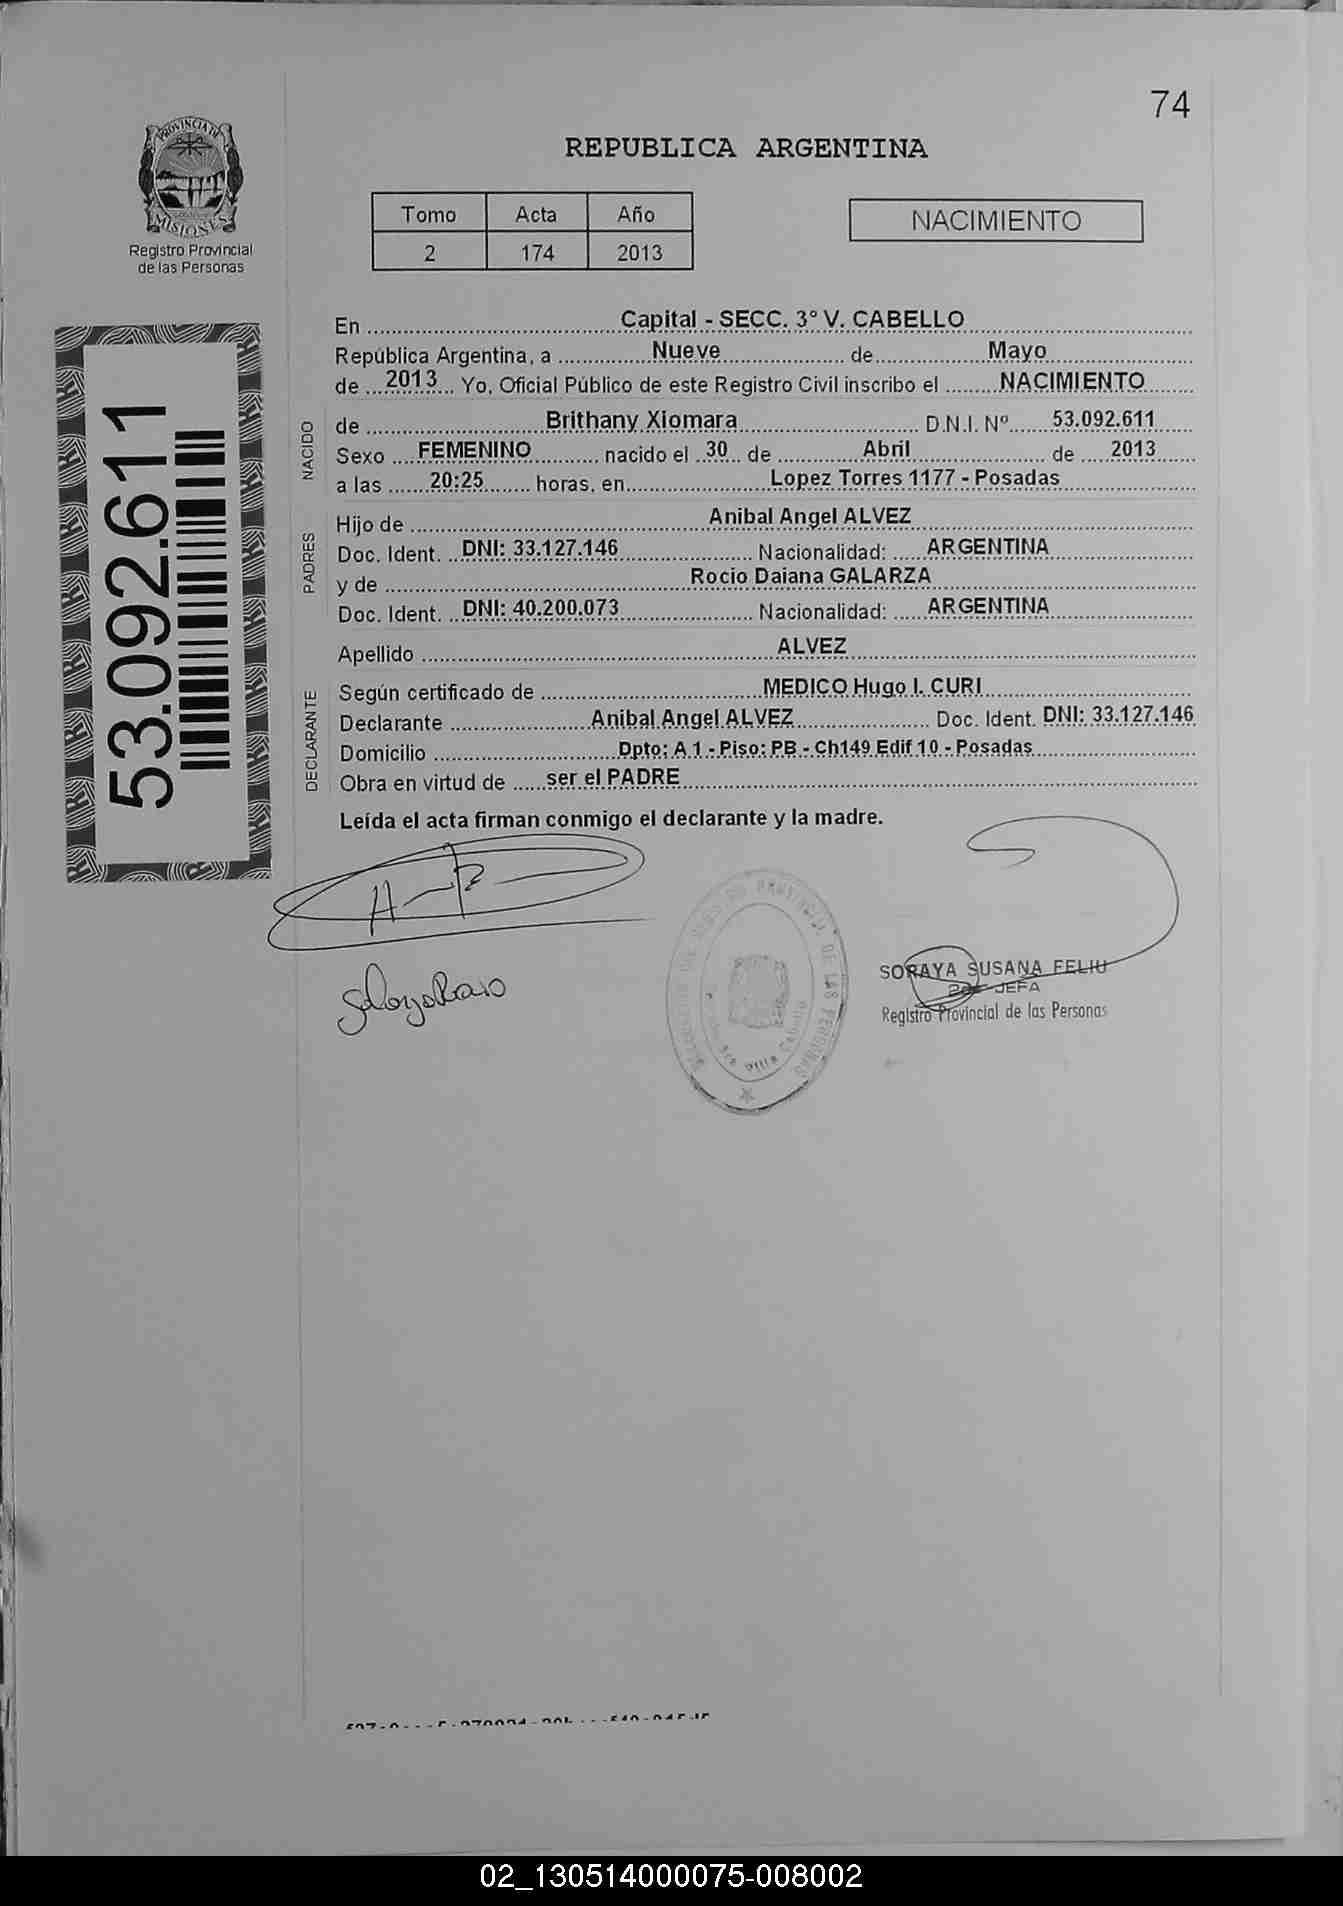 74
PROVINCIA DE
MISIONES
Registro Provincial
de las Personas
REPUBLICA ARGENTINA
Tomo Acta Año
2 174 2013
NACIMIENTO
53.092.611
En Capital - SECC. 3° V. CABELLO
República Argentina, a Nueve de Mayo
de 2013 Yo, Oficial Público de este Registro Civil inscribo el NACIMIENTO
NACIDO
de Brithany Xiomara D.N.I. Nº 53.092.611
Sexo FEMENINO nacido el 30 de Abril de 2013
a las 20:25 horas, en Lopez Torres 1177 - Posadas
PADRES
Hijo de Anibal Angel ALVEZ
Doc. Ident. DNI: 33.127.146 Nacionalidad: ARGENTINA
y de Rocio Daiana GALARZA
Doc. Ident. DNI: 40.200.073 Nacionalidad: ARGENTINA
Apellido ALVEZ
DECLARANTE
Según certificado de MEDICO Hugo I. CURI
Declarante Anibal Angel ALVEZ Doc. Ident. DNI: 33.127.146
Domicilio Dpto: A 1 - Piso: PB - Ch149 Edif 10 - Posadas
Obra en virtud de ser el PADRE
Leída el acta firman conmigo el declarante y la madre.
PROVINCIAL DE LAS PERSONAS
Villa Cabello
SORAYA SUSANA FELIU
JEFA
Registro Provincial de las Personas
02_130514000075-008002